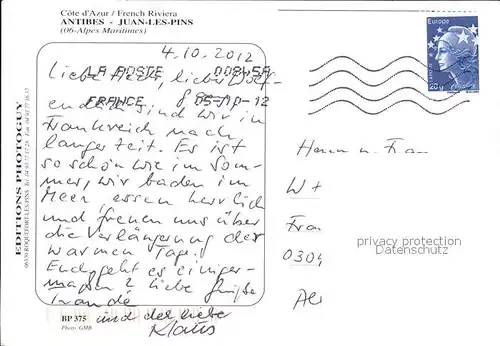 Côte d'Azur / French Riviera
ANTIBES - JUAN-LES-PINS
(06-Alpes Maritimes)
4.10.2012
Liebe lieber
LA POSTE
endlich sind wir in
FRANCE 05-10-12
Frankreich nach
langer Zeit. Es ist
so schön wie im Som-
mer, wir baden im
Meer, essen herrlich
und freuen uns über
die Verlängerung der
warmen Tage.
Euch geht es einiger-
maßen? Liebe Grüße
und der liebe
Klaus
BP 375
Photo: GMB
EDITIONS PHOTOGUY
Europe
20g
Herrn u. Frau
W
Fra
0304
privacy protection
Datenschutz